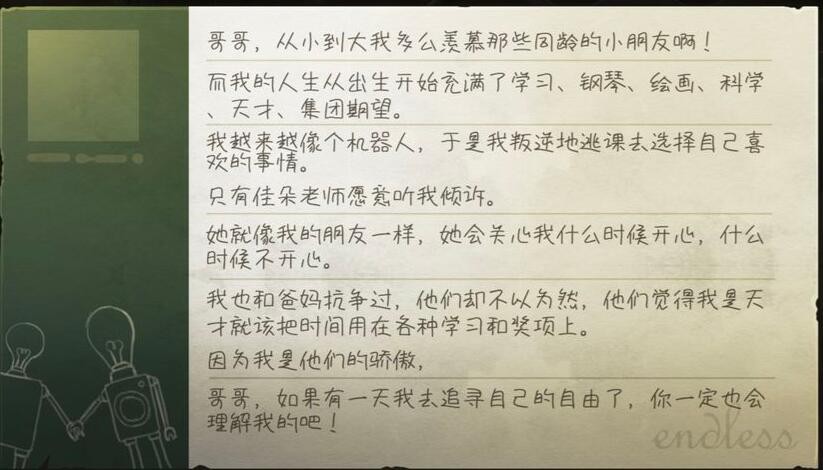 哥哥，从小到大我多么羡慕那些同龄的小朋友啊！
而我的人生从出生开始充满了学习、钢琴、绘画、科学
、天才、集团期望。
我越来越像个机器人，于是我叛逆地逃课去选择自己喜
欢的事情。
只有佳朵老师愿意听我倾诉。
她就像我的朋友一样，她会关心我什么时候开心，什么
时候不开心。
我也和爸妈抗争过，他们却不以为然，他们觉得我是天
才就该把时间用在各种学习和奖项上。
因为我是他们的骄傲，
哥哥，如果有一天我去追寻自己的自由了，你一定也会
理解我的吧！
endless